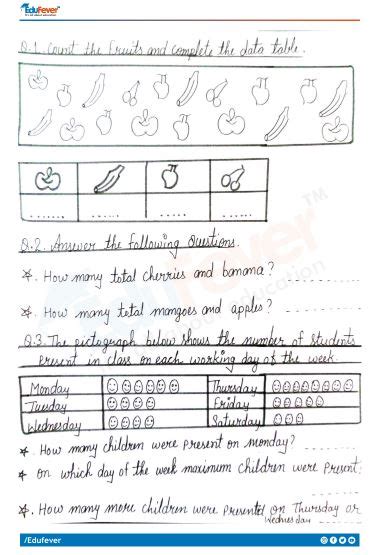 Edufever
Q.1. Count the fruits and complete the data table.
Q.2. Answer the following Questions.
☆. How many total cherries and banana?
☆. How many total mangoes and apples?
Q.3. The pictograph below shows the number of students
Present in class on each working day of the week.
Monday Thursday
Tuesday Friday
Wednesday Saturday
☆. How many children were present on monday?
☆ on which day of the week maximum children were Present.
☆. How many more children were Presented on Thursday or
Wednesday
/Edufever